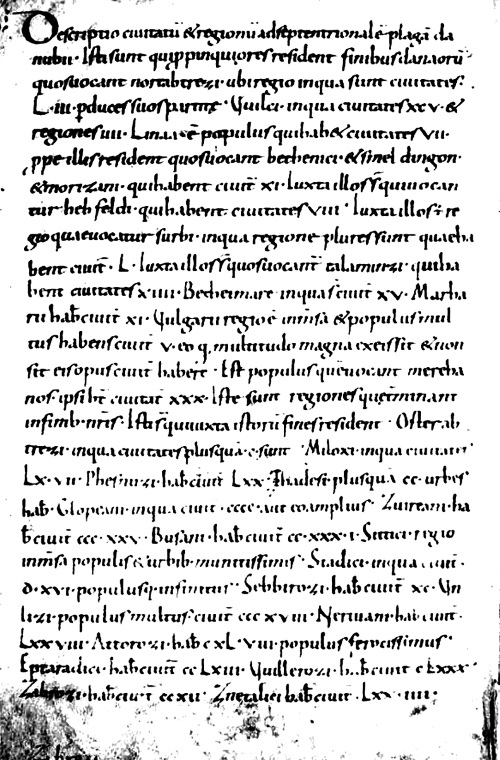 Descriptio civitatū & regionū ad septentrionalē plagā da
nubii. Isti sunt qui ppinquiores resident finibus danaorū
quos uocant nortabtrezi. ubi regio in qua sunt ciuitates.
L.iii. p duces suos partite. Uuilci. in qua ciuitates xcv. &
regiones iiii. Linaa. ē populus qui hab& ciuitates vii.
ppe illis resident quos uocant bethenici. & smeldingon.
& morizani. qui habent ciuit xi. Iuxta illos s̄ qui uocan
tur hehfeldi. qui habent ciuitates viii. Iuxta illos. ē re
gio quae uocatur surbi. in qua regione plures sunt quae ha
bent ciuit. L. Iuxta illos s̄ quos uocant talaminzi. qui ha
bent ciuitates xiiii. Becheimare in qua s̄ ciuit xv. Marha
rii hab̄ ciuit xi. Uulgarii regio ē inm̄sa & populus mul
tus habens ciuit v. eo q, multitudo magna ex eis sit & non
sit eis opus ciuit habere. Est populus quē uocant mereha
nos. ipsi hn̄t ciuitat xxx. Iste sunt regiones que tminant
in finib. nr̄is. Isti s̄ qui iuxta istorū fines resident. Osterab
trezi. in qua ciuitates plus quā. c. sunt. Miloxi. in qua ciuitates
Lx.vii. Phesnuzi. hab̄ ciuit Lxx. Thadesi. plus quā cc. urbes
hab̄. Glopeani. in qua ciuit. cccc. aut eo amplius. Zuireani. ha
b̄ ciuit ccc.xxv. Busani. hab̄ ciuit cc.xxx.i. Sittici. regio
inm̄sa populis & urbib. munitissimis. Stadici. in qua ciuit.
d.xvi. populusq, infinitus. Sebbirozi. hab̄ ciuit xc. Un
lizi. populus multus. ciuit ccc xviii. Neriuani. hab̄ ciuit.
Lxxviii. Attorozi. hab̄ c xL.viii. populus ferocissimus.
Eptaradici. hab̄ ciuit cc Lxiii. Uuillerozi. hab̄ ciuit c Lxxx.
Zabrozi. hab̄ ciuit cc xii. Znetalici hab̄ ciuit. Lxx.iiii.